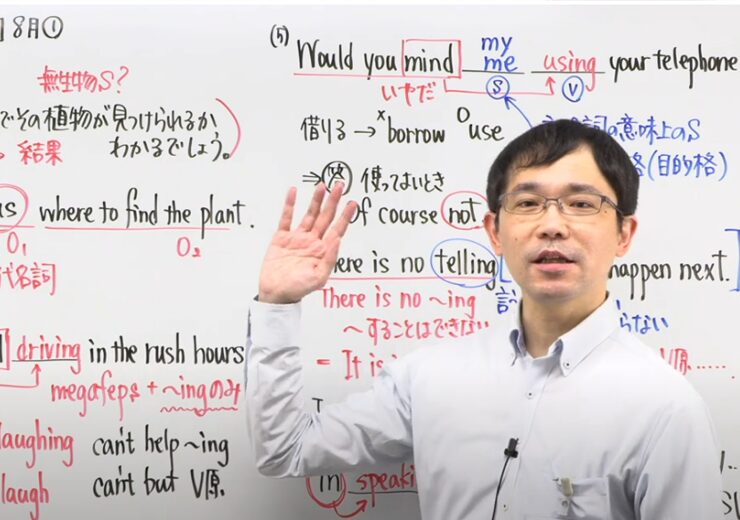 8月①
無生物S?
でその植物が見つけられるか
わかるでしょう。
結果
where to find the plant.
O₁
O₂
代名詞
driving in the rush hours
megafeps + ~ingのみ
laughing can't help ~ing
laugh can't but V原
(5)
my
Would you mind me using your telephone
いやだ
S
V
借りる → ×borrow ○use
の意味上のS
⇒答 使ってよいとき
格(目的格)
Of course not
here is no telling happen next.
There is no ~ing
~することはできない
らない
= It is
V原......
in speaki